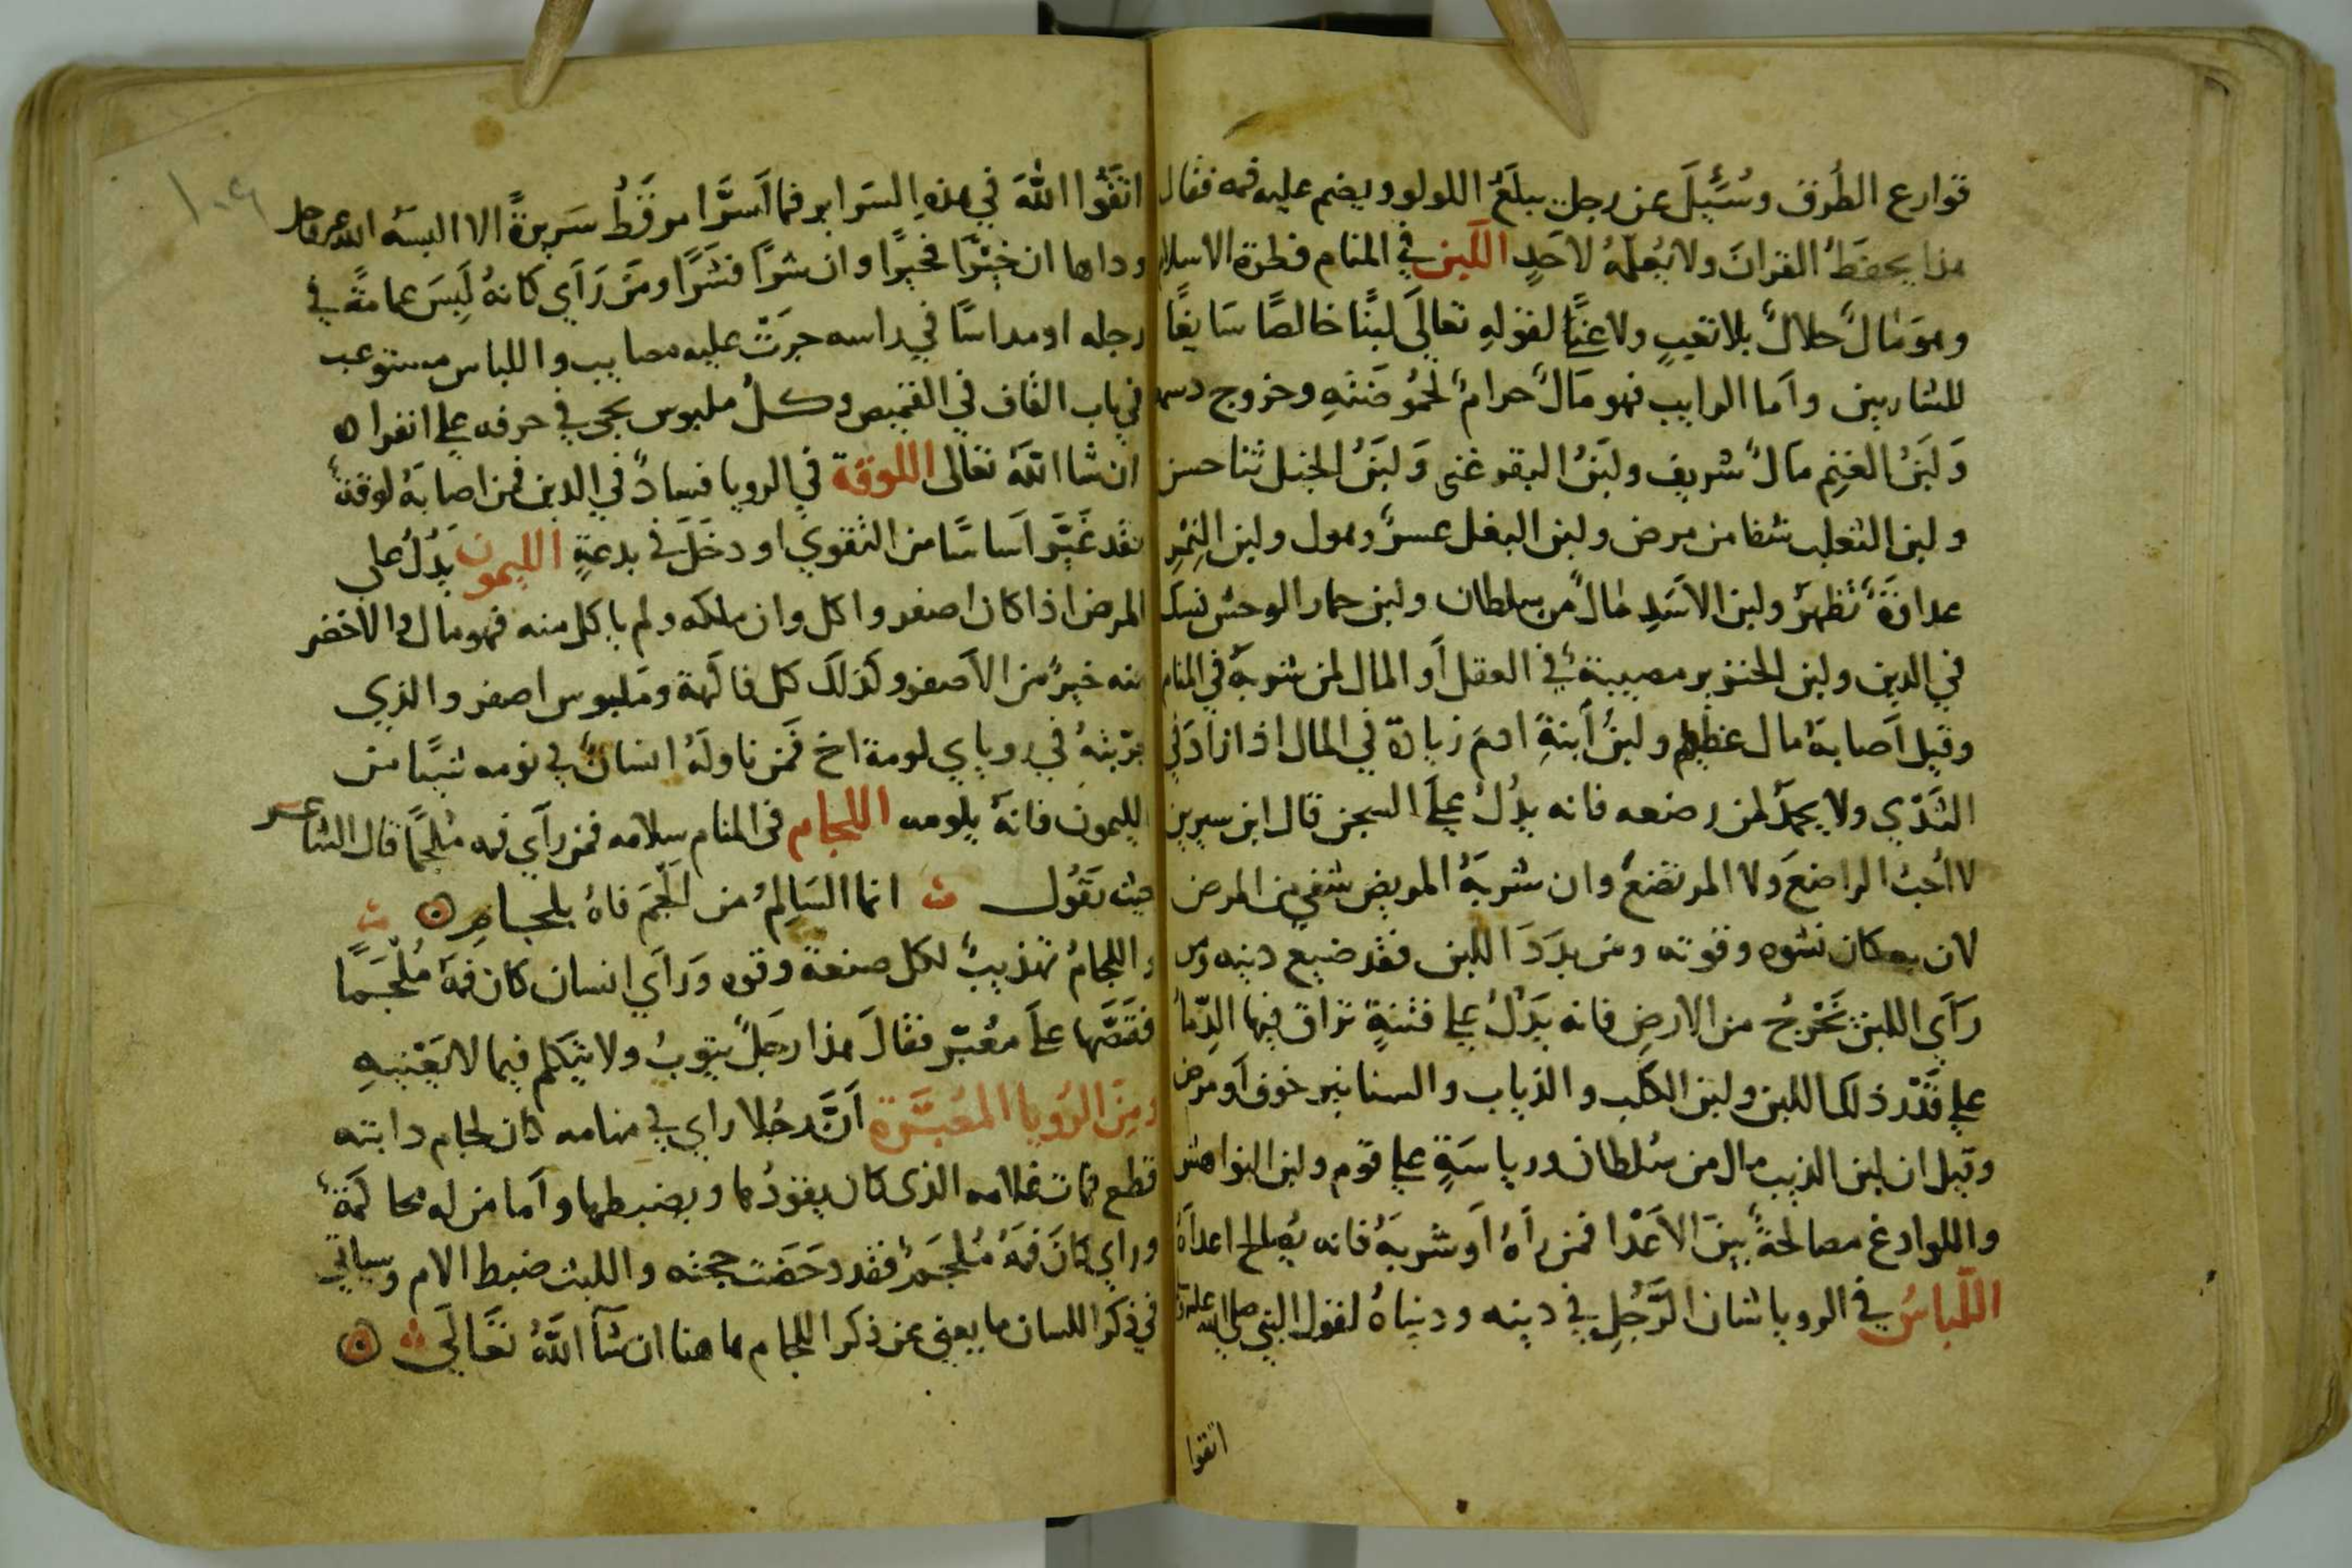 قوارع الطُرق وسُئِلَ عن رجل يبلَعُ اللولو ويضم عليه فمه فقال
هذا يحفظُ القرانَ ولا يُعلمُهُ لاحَدٍ اللَبن في المنام فطرة الاسلام
وهوَ مَالٌ حلالٌ بلا تعبٍ ولا عنًا لقولهِ تعالَى لبنًا خالصًا سَايغًا
للشاربين واَما الرايب فهو مَالٌ حرامٌ لحُموضَتهِ وخروج دسمه
وَلبَنُ الغنِم مَالٌ شريف ولبَنُ البقر غنى وَلبَنُ الخيل ثنا حسن
ولبن الثعلب شفا من مرض ولبن البغل عسرٌ وهول ولبن النِمْرِ
عداوَةٌ تظهرُ ولبن الاسَدِ مَالٌ من سلطان ولبن حمار الوحش نسك
في الدين ولبن الخنزير مصيبةٌ في العقل اَو المال لمن شربهُ في المنام
وقيل اَصابهُ مال عظيم ولبنُ اَبنةِ ادمَ زيادة في المال اذا زادَ في
الثَدْي ولا يحمدُ لمن رضعه فانه يدُلُ علَى السجن قال ابن سيرين
لا اُحبُ الراضعَ ولا المرتضعَ وان شربهُ المريض شفي من المرض
لان به كان نشوه وقوته ومن بدَدَ اللبن فقد ضيع دينه ومن
رَاَي اللبن تَخْرجُ من الارضِ فانه يَدُلُ علي فتنةٍ تراق فيها الدِمَا
علي قَدْر ذلك اللبن ولبن الكلب والذياب والسنانير خوف اَو مرض
وقيل ان لبن الذيب مال من سُلطان ورياسَةٍ علي قوم ولبن النواهش
واللوادغ مصالحةٌ بينَ الاَعَدْا فمن راَهُ اَو شربهُ فانه يُصالح اعداَهُ
اللبَاسُ في الرويا شان الرَّجُلِ في دينه ودنياهُ لقول النبي صلي الله عليه
اتقوا
اتقُوا اللهَ في هذهِ السَراير فما اَسَرَّ امرٌ قَطُ سَريرةً الا البسهُ الله عز وجل
رداها ان خيْرًا فخيرًا وان شرًا فشَرًا ومَن رَاَي كانهُ لَبِسَ عمامةً في
رجله او مداسًا في راسه جرَتْ عليه مصايب واللباس مستوعب
في باب القاف في القميص وكلُ ملبوس يجي في حرفه علي انفرا ه
ان شا اللهُ تعالى اللوقة في الرويا فسادٌ في الدين فمن اصابهُ لوقةٌ
فقد غَيَّر اَساسًا من التقوي او دخَلَ في بدعةٍ الليمون يَدُلُ على
المرض اذا كان اصفر واكل وان ملكه ولم ياكل منه فهو مال والاخضر
منه خيرٌ من الاَصفر وكذلكَ كل فاكهة ومَلبوس اصفر والذي
جرّبتهُ في روياي لومة اخ فَمن ناولَهُ انسانٌ في نومه شيًا من
الليمون فانهُ يلومه اللجام في المنام سلامه فمن راَي فمه مُلجَمًا قال الشاعر
حيث يَقُول ث انما السَالِمُ من اَلجَمَ فاهُ بلجامِ ث
واللجامُ تهذيبٌ لكل صنعة وقوه وَرَاَي انسان كان فمهُ مُلْجَمًا
فقَصَّها علَي مُعبّر فقالَ هذا رجَلٌ يتوبُ ولا يتكلم فيما لا يَعْنيهِ
ومِنَ الرُويا المعُبَّرة اَنَّ رجُلا راي في منامه كان لجام دابته
قطع فمات غلامه الذى كان يقودُها ويضبطها واَما من له محاكمَةٌ
وراي كانَ فمهُ مُلجَمٌ فقد دحَضت حجته واللبث ضبط الامر وسياتي
في ذكر اللسان ما يغني عن ذكر اللجام هاهنا ان شَآ اللهُ تعَالَي ث